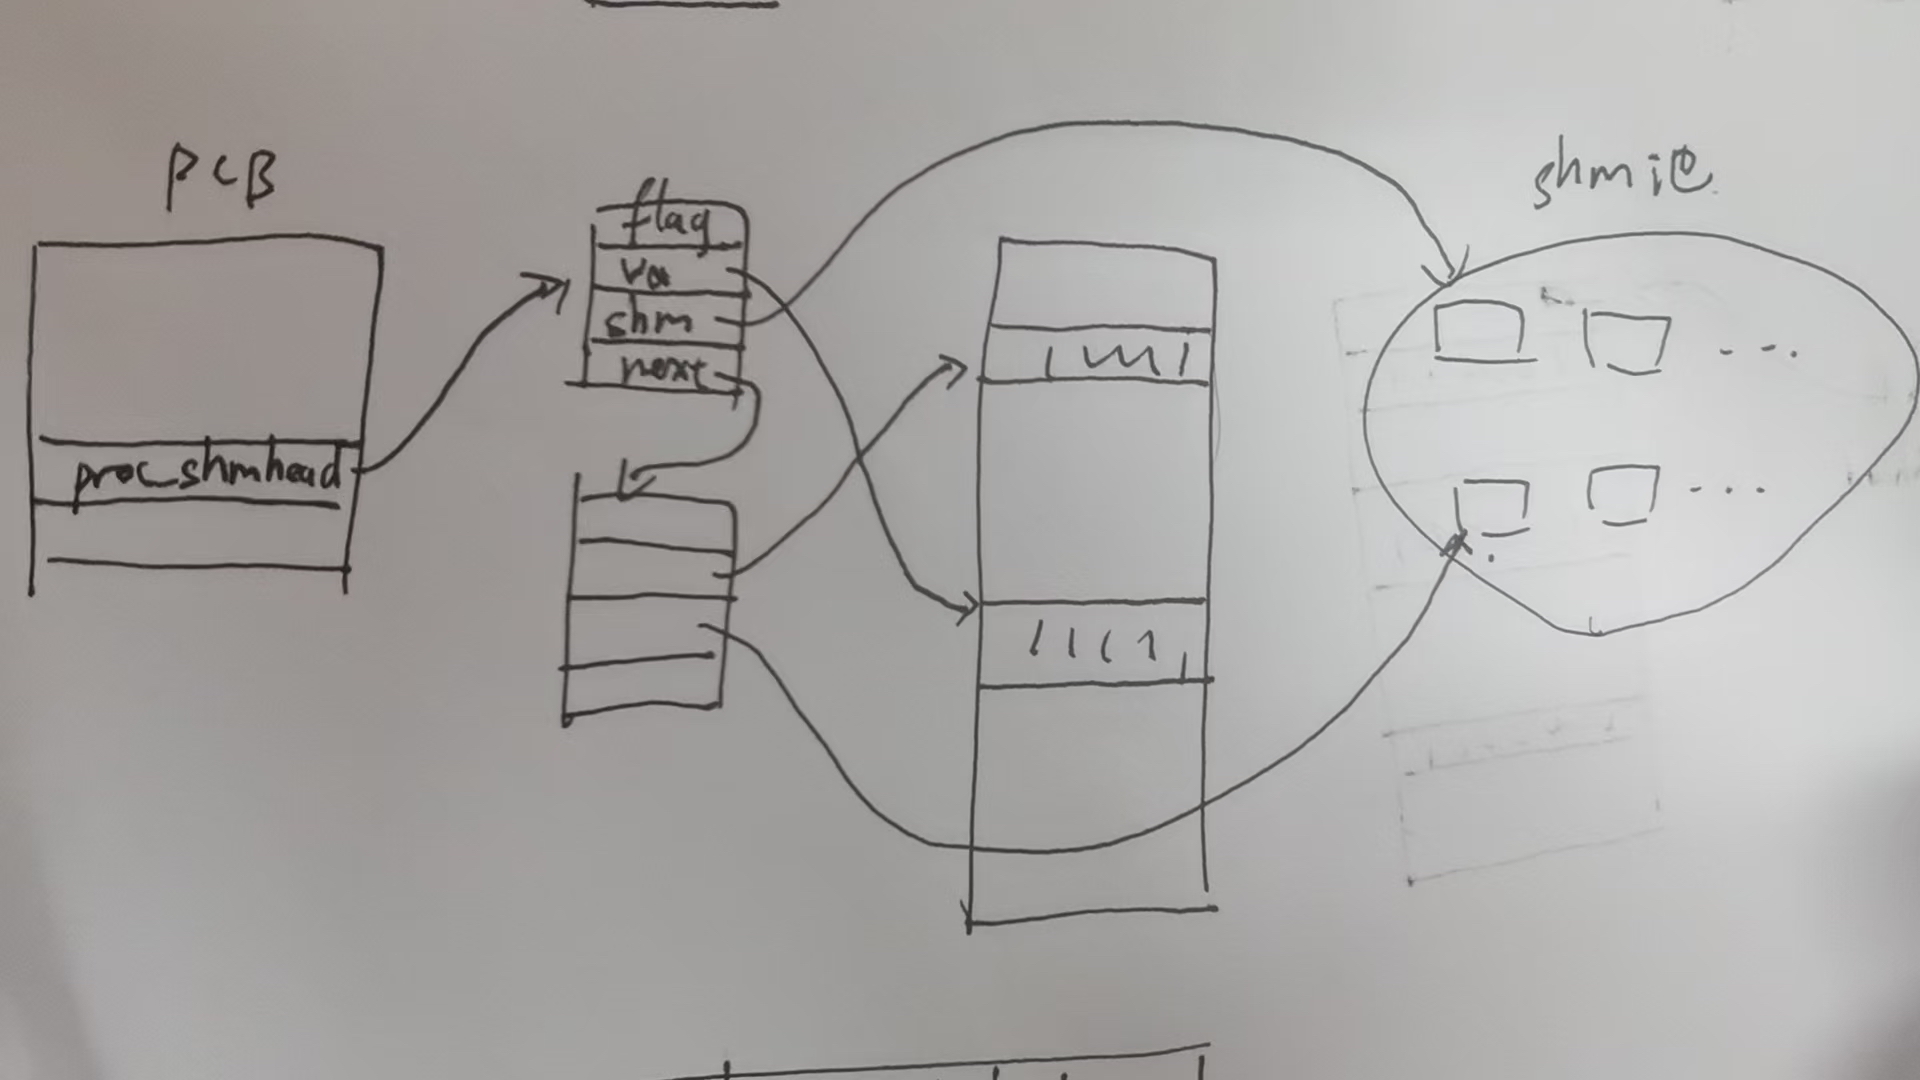 PCB
proc_shmhead
flag
va
shm
next